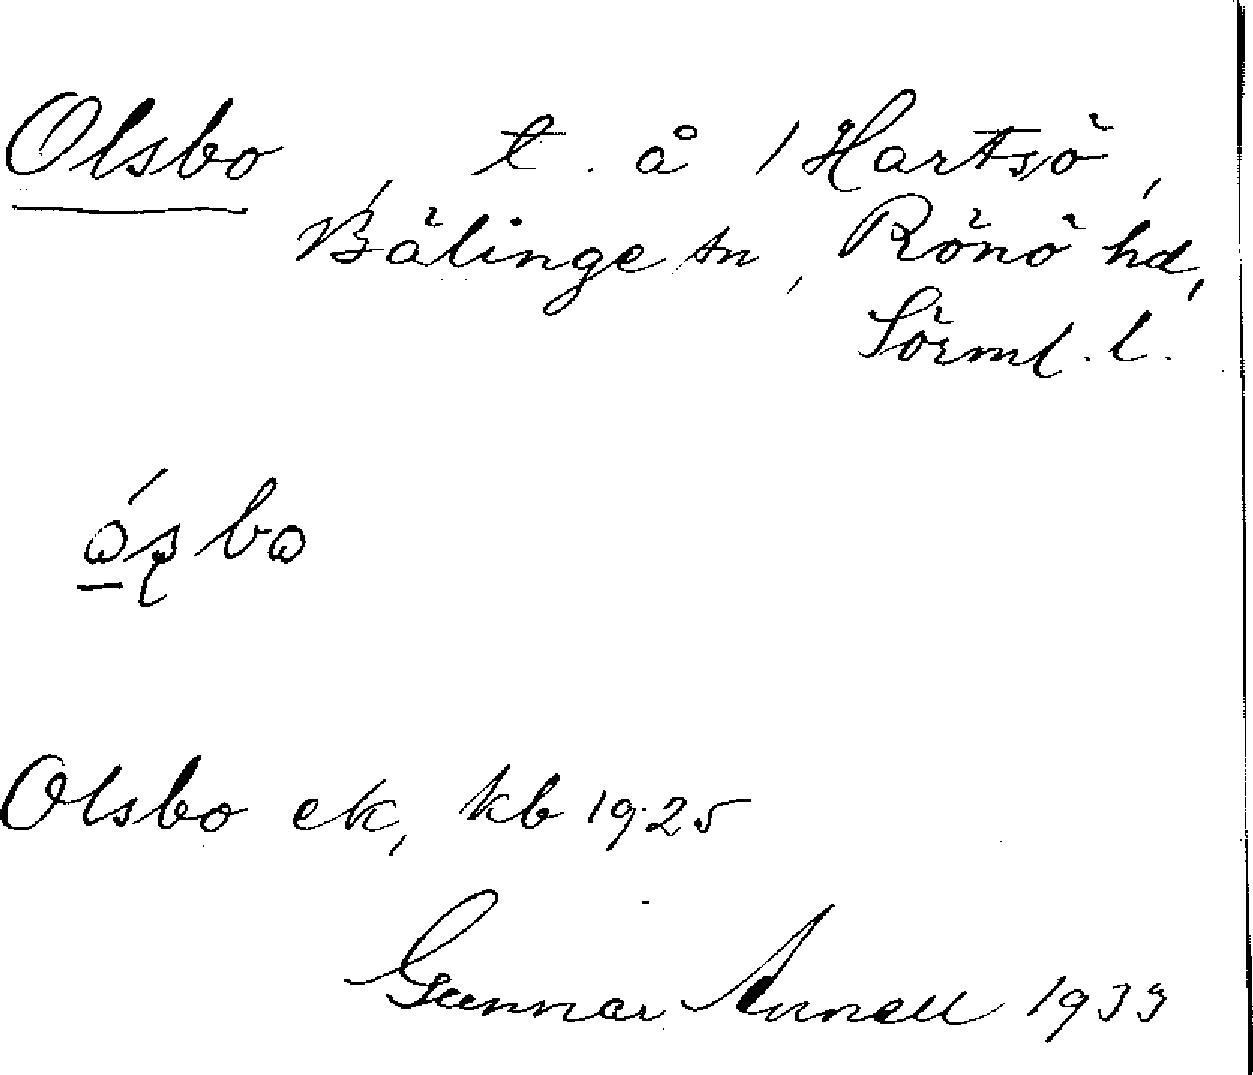 Olsbo, t. å /Hartsö,
Bälinge sn, Rönö hd,
Sörml. l.
ósbo
Olsbo ek, kb 1925
Gunnar Arnell 1933